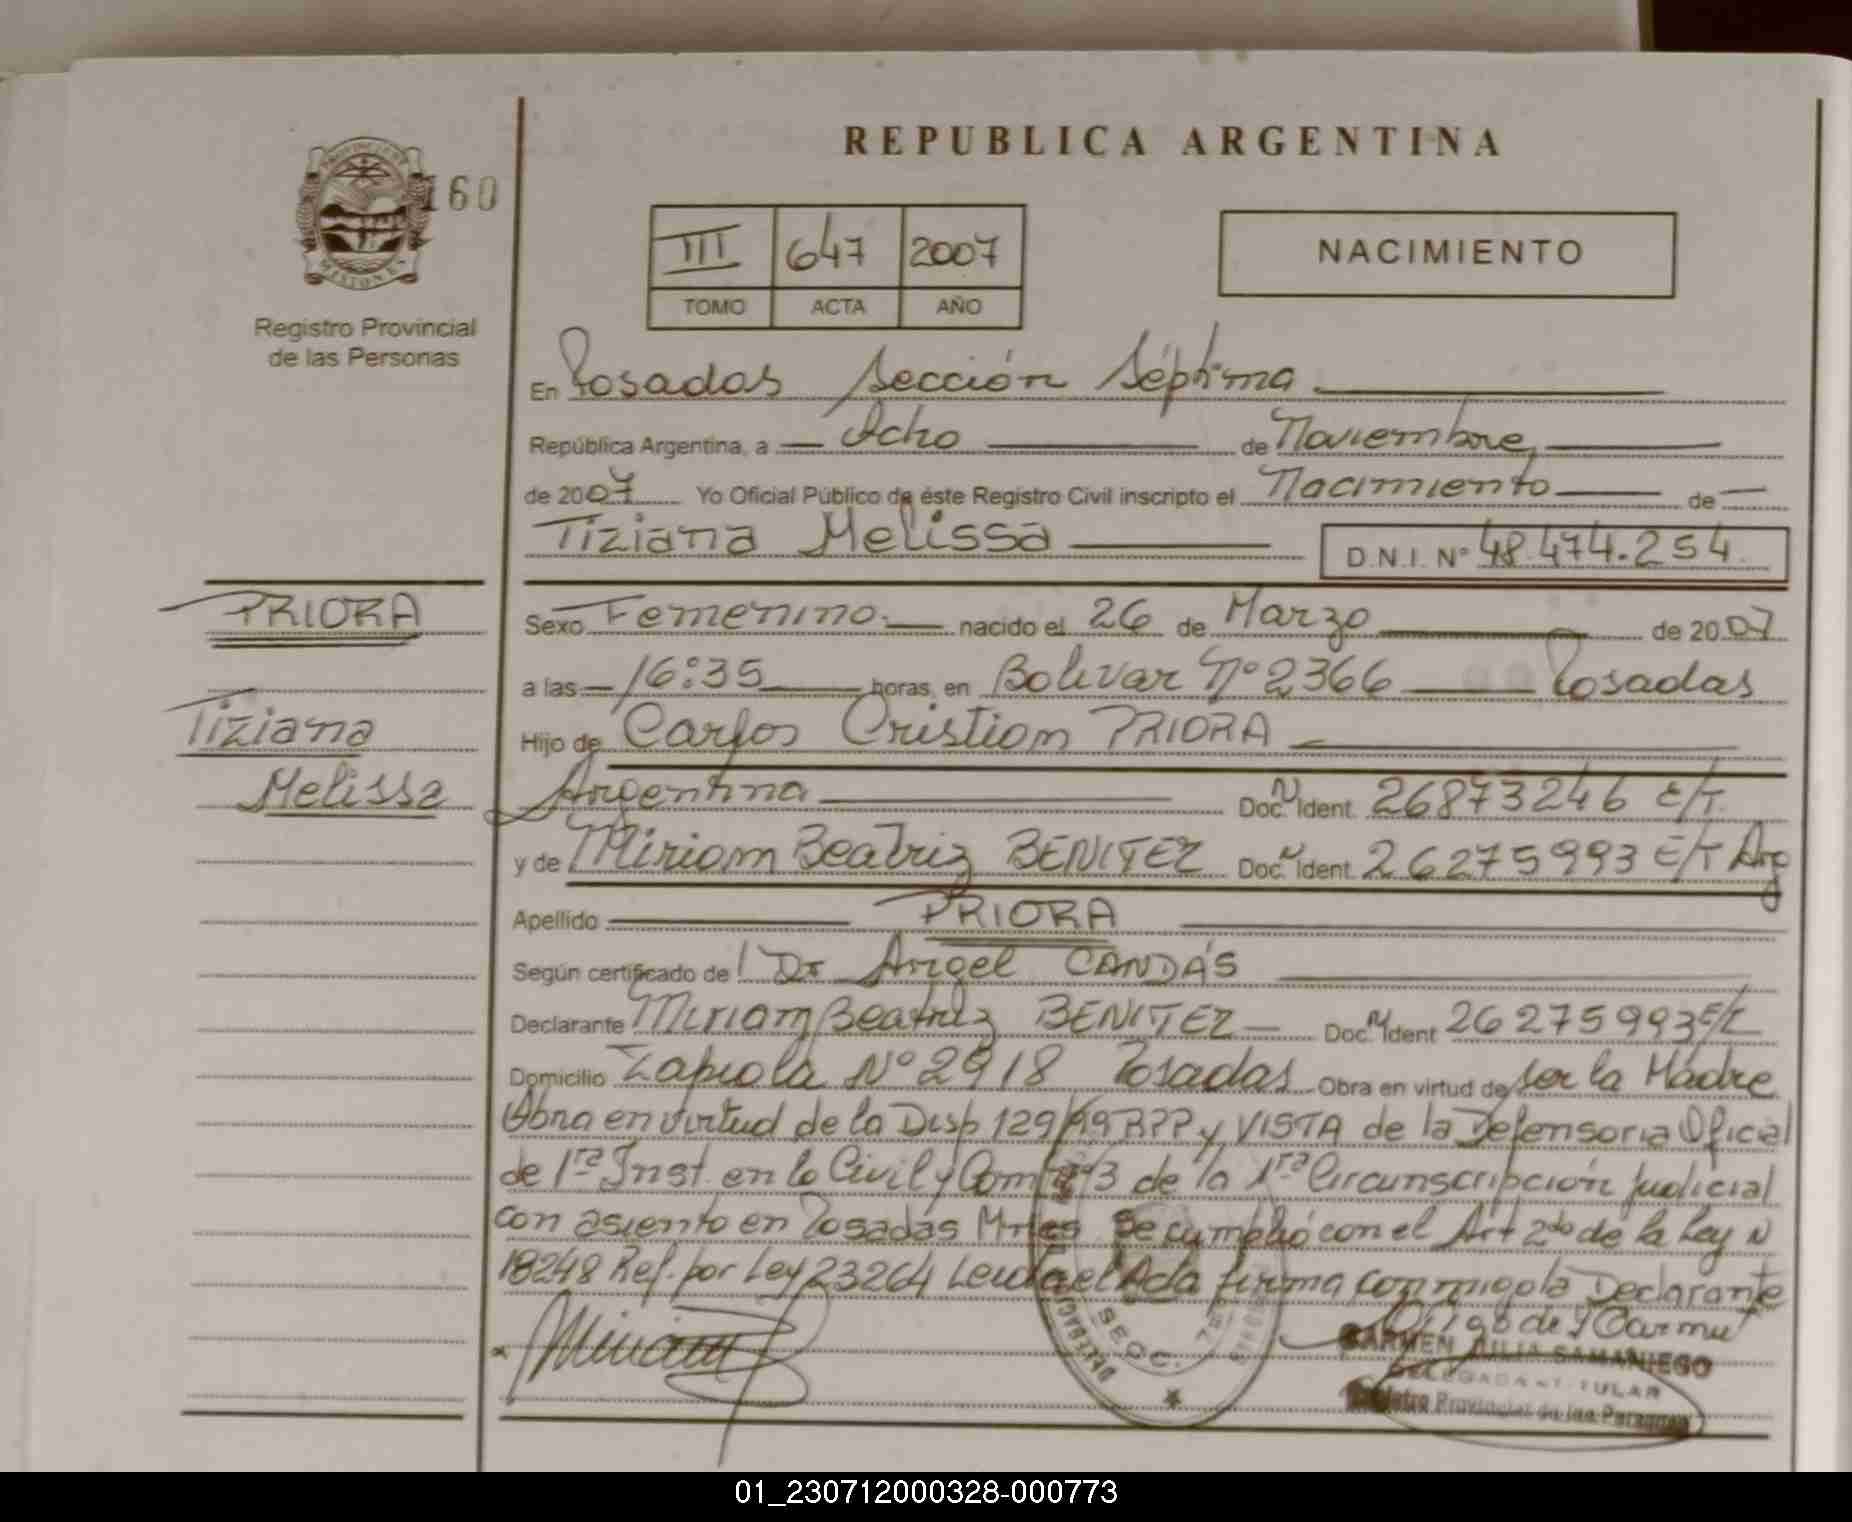 REPUBLICA ARGENTINA
PROVINCIA DE
MISIONES
160
Registro Provincial
de las Personas
III 647 2007
TOMO ACTA AÑO
NACIMIENTO
En Posadas Sección Séptima
República Argentina, a Ocho de Noviembre
de 2007 Yo Oficial Público de éste Registro Civil inscripto el Nacimiento de
Tiziana Melissa D.N.I. Nº 48.474.254
PRIORA
Tiziana
Melissa
Sexo Femenino nacido el 26 de Marzo de 2007
a las 16:35 horas, en Bolivar Nº 2366 Posadas
Hijo de Carlos Cristian PRIORA
Argentina Doc. N Ident. 26873246 E/T.
y de Miriam Beatriz BENITEZ Doc. N Ident. 26275993 E/T Arg
Apellido PRIORA
Según certificado de Dr Angel CANDÁS
Declarante Miriam Beatriz BENITEZ Doc. N Ident 26275993 E/T
Domicilio Zapiola Nº 2918 Posadas Obra en virtud de ser la Madre
Obra en virtud de la Disp 129/99 RPP y VISTA de la Defensoria Oficial
de 1ra Inst. en lo Civil y Com Nº 3 de la 1ra Circunscripción judicial
con asiento en Posadas Mnes Se cumplió con el Art 2do de la Ley N
18248 Ref. por Ley 23264 Leida el Acta firma conmigo la Declarante
Miriam
SECC. 7
CARMEN JULIA SAMANIEGO
DELEGADA TITULAR
Registro Provincial de las Personas
01_230712000328-000773